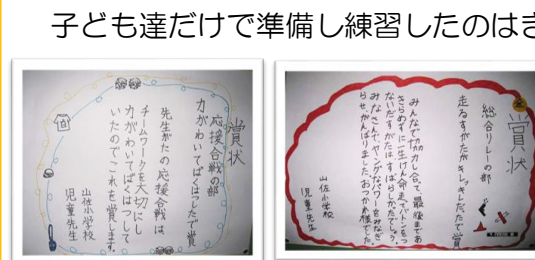 子ども達だけで準備し練習したのは
賞状
応援合戦の部
力がわいてばくはつしたで賞
先生がたの応援合戦は
チームワークを大切にし
力がわいてばくはつして
いたのでこれを賞します。
山佐小学校
児童先生
賞状
総合リレーの部
走るすがたがキレッキレだったで賞
みんなで協力し合って、最後まであ
きらめずに一生けん命走って、バトンをつ
ないだすがたは、すばらしかったでしょう。
みなさんで、ヤングなパワーをみなぎ
らせ、がんばりました。おつかれ様でした。
山佐小学校
児童先生